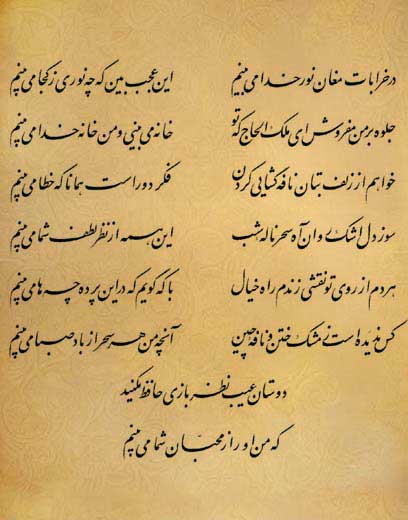 در خرابات مغان نور خدا می بینم
این عجب بین که چه نوری ز کجا می بینم
جلوه بر من مفروش ای ملک الحاج که تو
خانه می بینی و من خانه خدا می بینم
خواهم از زلف بتان نافه گشایی کردن
فکر دور است همانا که خطا می بینم
سوز دل اشک روان آه سحر ناله شب
این همه از نظر لطف شما می بینم
هر دم از روی تو نقشی زندم راه خیال
با که گویم که در این پرده چه ها می بینم
کس ندیده است ز مشک ختن و نافه چین
آنچه من هر سحر از باد صبا می بینم
دوستان عیب نظر بازی حافظ مکنید
که من او را ز محبان شما می بینم